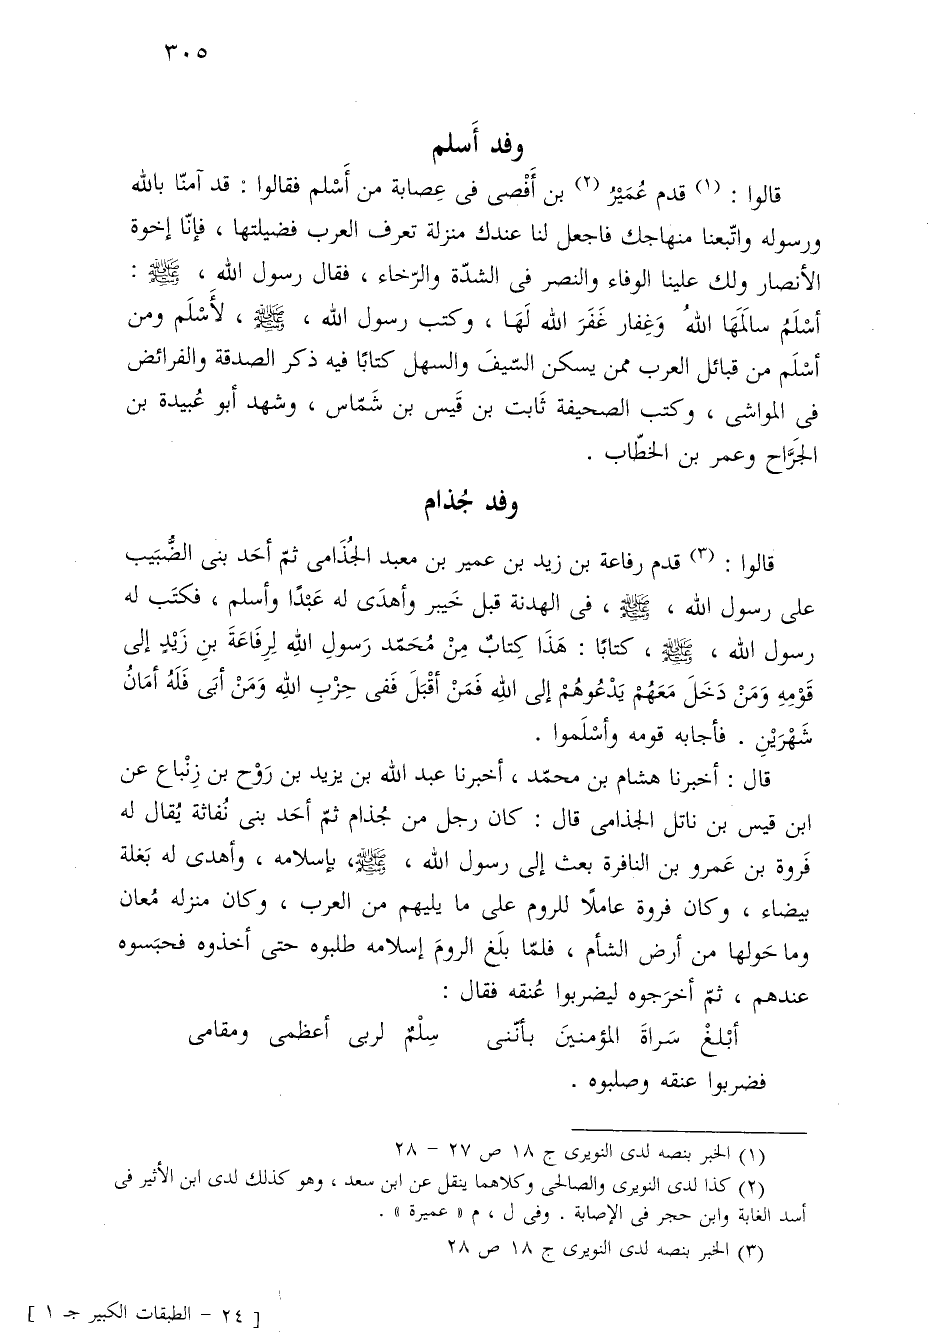 ٣٠٥
وفد أَسلم
قالوا : (١) قدم عُمَيْرُ (٢) بن أَفْصى فى عِصابة من أَسْلم فقالوا : قد آمنّا بالله
ورسوله واتّبعنا منهاجك فاجعل لنا عندك منزلة تعرف العرب فضيلتها ، فإنّا إخوة
الأنصار ولك علينا الوفاء والنصر فى الشدّة والرّخاء ، فقال رسول الله ، ﷺ :
أسْلَمُ سالَمَها اللهُ وَغِفار غَفَرَ الله لَهَا ، وكتب رسول الله ، ﷺ ، لأَسْلَم ومن
أسْلَم من قبائل العرب ممن يسكن السّيفَ والسهل كتابًا فيه ذكر الصدقة والفرائض
فى المواشى ، وكتب الصحيفة ثَابت بن قَيس بن شَمّاس ، وشهد أبو عُبيدة بن
الجَرَّاح وعمر بن الخطّاب .
وفد جُذام
قالوا : (٣) قدم رفاعة بن زيد بن عمير بن معبد الجُذَامى ثمّ أحَد بنى الضُّبَيب
على رسول الله ، ﷺ ، فى الهدنة قبل خَيبر وأهدَى له عَبْدًا وأسلم ، فكتَب له
رسول الله ، ﷺ ، كتابًا : هَذَا كِتابٌ مِنْ مُحَمّد رَسولِ اللهِ لِرِفَاعَةَ بنِ زَيْدٍ إلى
قَوْمِهِ وَمَنْ دَخَلَ مَعَهُمْ يَدْعُوهُمْ إلى اللهِ فَمَنْ أقْبَلَ فَفى حِزْبِ اللهِ وَمَنْ أبَى فَلَهُ أمَانُ
شَهْرَيْنِ . فأجابه قومه وأسْلَموا .
قال : أخبرنا هشام بن محمّد ، أخبرنا عبد الله بن يزيد بن رَوْح بن زِنْباع عن
ابن قيس بن ناتل الجذامى قال : كان رجل من جُذام ثمّ أحَد بنى نُفاثة يُقال له
فَروة بن عَمرو بن النافرة بعث إلى رسول الله ، ﷺ، بإسلامه ، وأهدى له بَغلة
بيضاء ، وكان فروة عاملًا للروم على ما يليهم من العرب ، وكان منزله مُعان
وما حَولها من أرض الشأم ، فلمّا بلَغ الرومَ إسلامه طلبوه حتى أخذوه فحبَسوه
عندهم ، ثمّ أخرَجوه ليضربوا عُنقه فقال :
أبْلغْ سَراةَ المؤمنينَ بأنّنى سِلْمٌ لربى أعظمى ومقامى
فضربوا عنقه وصلبوه .
(١) الخبر بنصه لدى النويرى ج ١٨ ص ٢٧ – ٢٨
(٢) كذا لدى النويرى والصالحى وكلاهما ينقل عن ابن سعد ، وهو كذلك لدى ابن الأثير فى
أسد الغابة وابن حجر فى الإصابة . وفى ل ، م « عميرة » .
(٣) الخبر بنصه لدى النويرى ج ١٨ ص ٢٨
[ ٢٤ – الطبقات الكبير جـ ١ ]